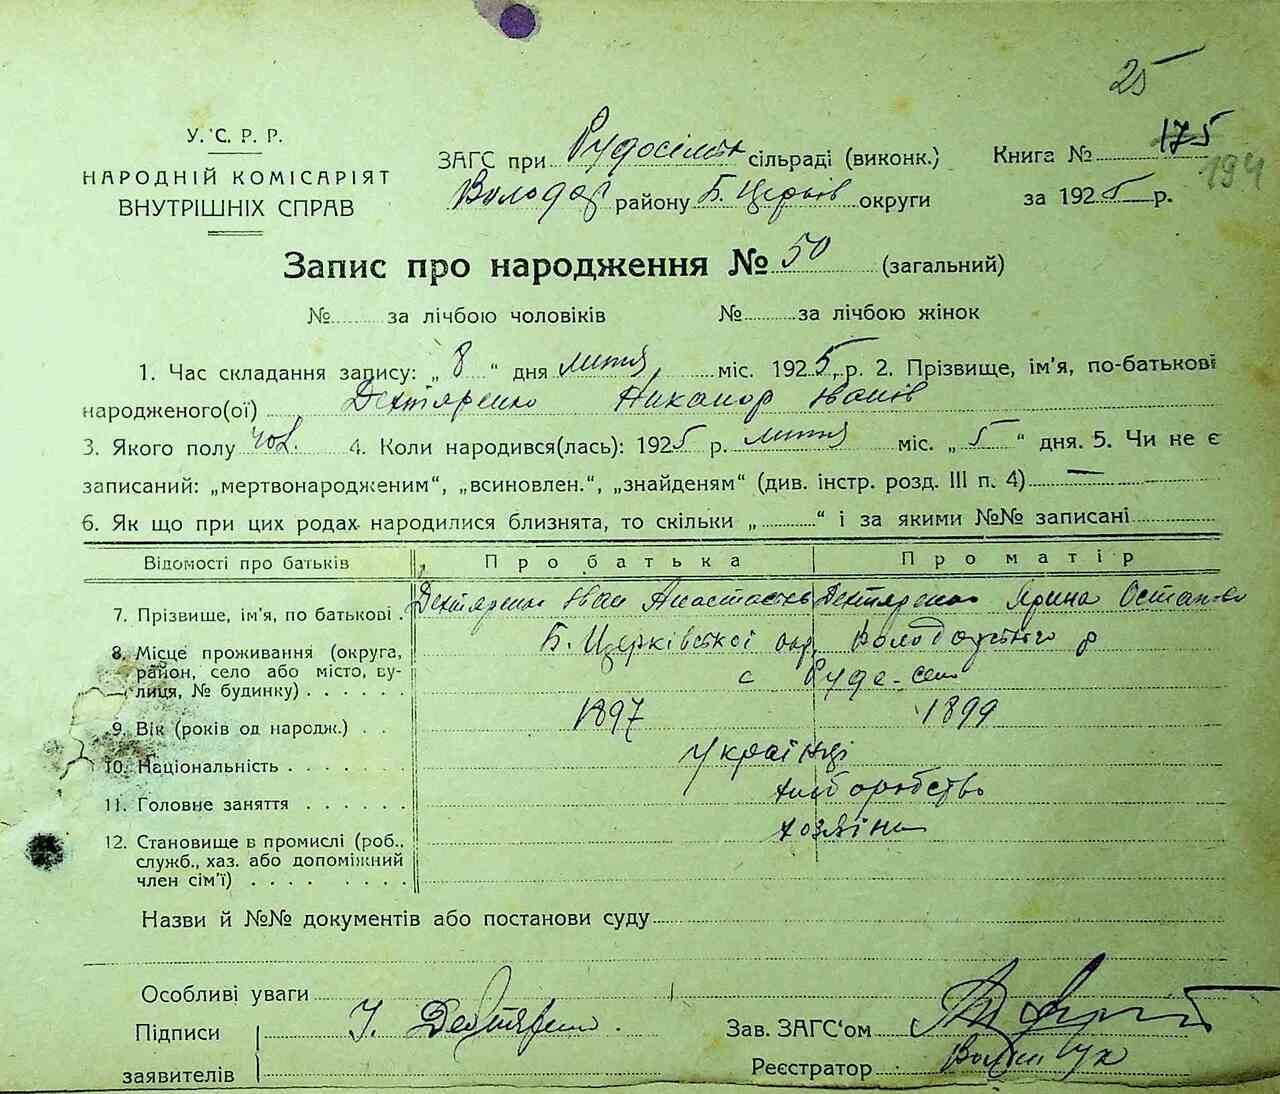 25
У.С.Р.Р.
НАРОДНІЙ КОМІСАРІЯТ
ВНУТРІШНІХ СПРАВ
ЗАГС при Рудосільск сільраді (виконк.)
Володар району Б. Церків округи
Книга № 175
194
за 1925 р.
Запис про народження № 50 (загальний)
№ за лічбою чоловіків № за лічбою жінок
1. Час складання запису: „ 8 “ дня лютня міс. 1925 р. 2. Прізвище, ім'я, по-батькові
народженого(ої) Дехтяренко Никанор Іванів
3. Якого полу чол. 4. Коли народився(лась): 1925 р. лютня міс. „ 5 “ дня. 5. Чи не є
записаний: „мертвонародженим“, „всиновлен.“, „знайденям“ (див. інстр. розд. III п. 4) —
6. Як що при цих родах народилися близнята, то скільки „ “ і за якими №№ записані
Відомості про батьків Про батька Про матір
7. Прізвище, ім'я, по батькові . Дехтяренко Іван Анастасієв Дехтяренко Ярина Остапова
8. Місце проживання (округа, Б. Церківської окр. Володарського р
район, село або місто, ву- с Руде-село
лиця, № будинку) . . . . . .
9. Вік (років од народж.) . . 1897 1899
10. Національність . . . . . . . Українці
11. Головне заняття . . . . . . хліборобство
12. Становище в промислі (роб., хозяіни
служб., хаз. або допоміжний
член сім'ї) . . . . . . . .
Назви й №№ документів або постанови суду
Особливі уваги
Підписи І. Дехтяренко.
заявителів
Зав. ЗАГС'ом
Реєстратор